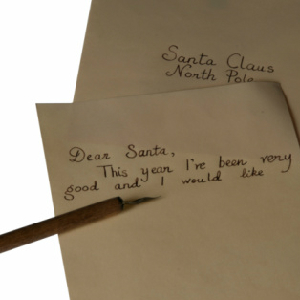 Santa Claus
North Pole
Dear Santa,
This year I've been very
good and I would like